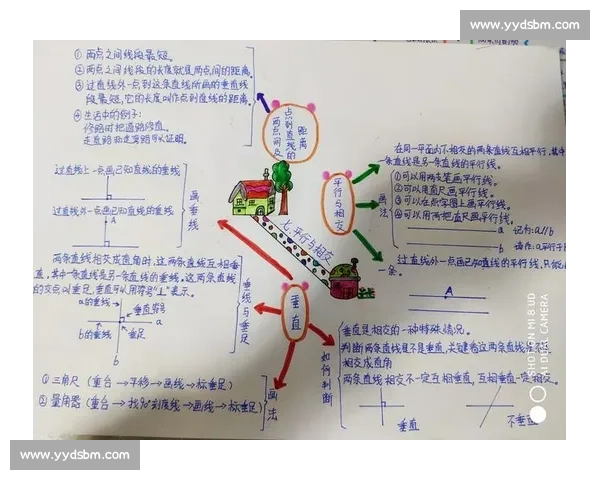 www.yydsbm.com
① 两点之间线段最短。
② 两点之间线段的长度就是两点间的距离。
③ 过直线外一点到这条直线所画的垂直线
段最短,它的长度叫作点到直线的距离。
④ 生活中的例子:
修路时把道路修直。
两点间及
点到直线的
距离
过直线上一点画已知直线的垂线
过直线外一点画已知直线的垂线
画垂线
两条直线相交成直角时,这两条直线互相垂
直,其中一条线是另一条直线的垂线。这两条直线
的交点叫垂足,垂直可以用符号“⊥”表示。
a的垂线
a
垂直符号
b的垂线
垂足
b
垂线与垂足
① 三角尺(重合→平移→画线→标垂足)
② 量角器(重合→找90°刻度线→画线→标垂足)
画法
七、平行与相交
垂直
平行与相交
在同一平面内不相交的两条直线互相平行,其中
一条直线是另一条直线的平行线。
画法
①可以用两支笔画平行线。
②可以用直尺画平行线。
③可以在点字图上画平行线。
④可以用两把直尺画平行线。
a 记为:a//b
b
过直线外一点画已知直线的平行线,只能
一条。
A
如何判断
垂直是相交的一种特殊情况。
判断两条直线是不是垂直,关键看这两条直线是否
相交成直角
两条直线相交不一定互相垂直,互相垂直一定相交。
垂直
不垂直
SHOT ON MI 8 UD
AI DUAL CAMERA
www.yydsbm.com